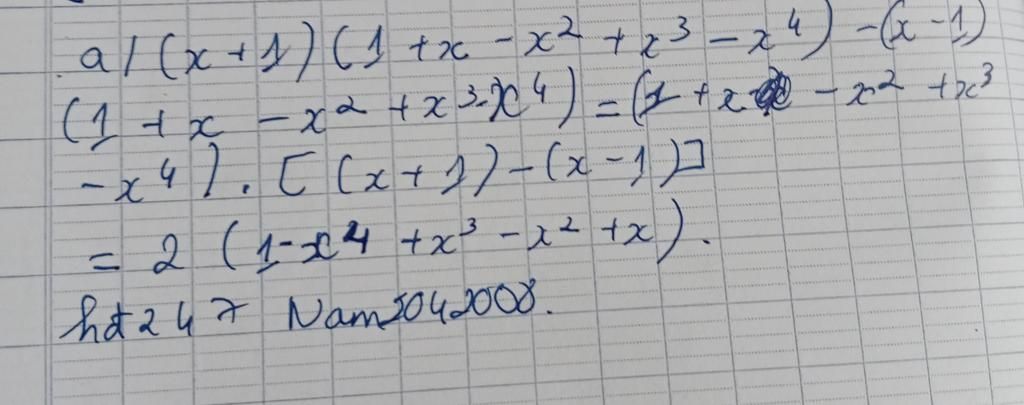 a/ (x+1)(1 + x - x² + x³ - x⁴) - (x - 1)
(1 + x - x² + x³ - x⁴) = (1 + x - x² + x³
- x⁴). [(x + 1) - (x - 1)]
= 2 (1 - x⁴ + x³ - x² + x).
hdt247 Nam3042008.